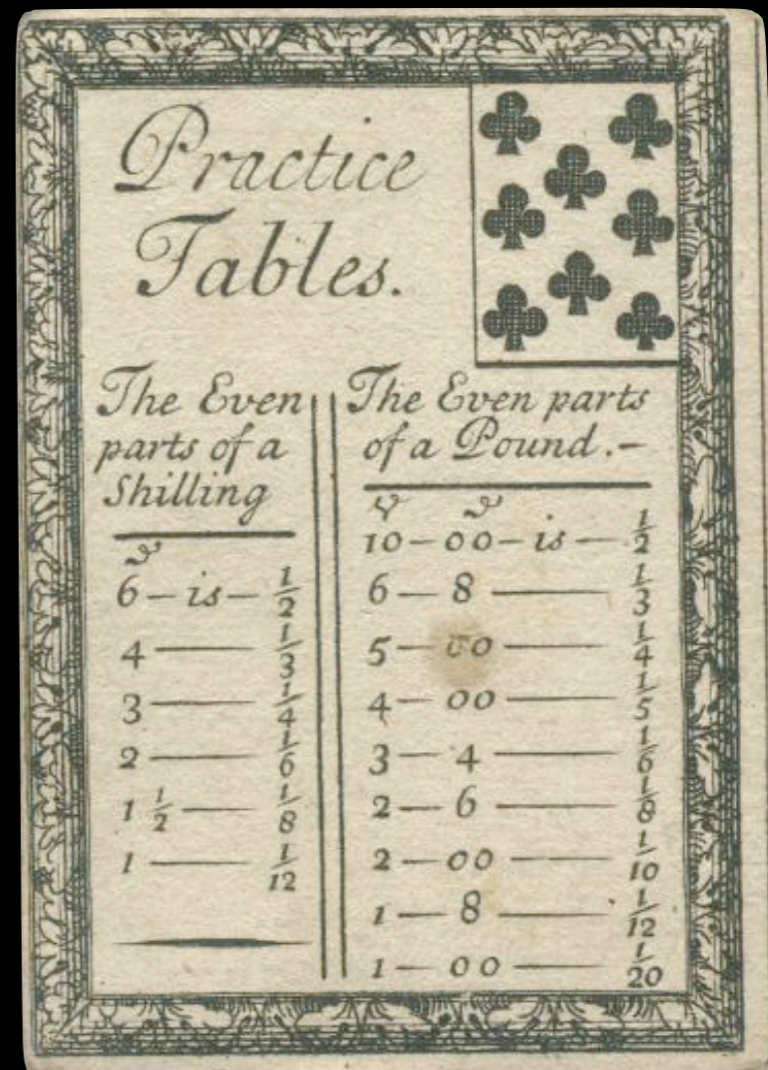 Practice
Tables.
The Even
parts of a
Shilling
6 — is — 1/2
4 — 1/3
3 — 1/4
2 — 1/6
1 1/2 — 1/8
1 — 1/12
The Even parts
of a Pound.—
10 — 00 — is — 1/2
6 — 8 — 1/3
5 — 00 — 1/4
4 — 00 — 1/5
3 — 4 — 1/6
2 — 6 — 1/8
2 — 00 — 1/10
1 — 8 — 1/12
1 — 00 — 1/20